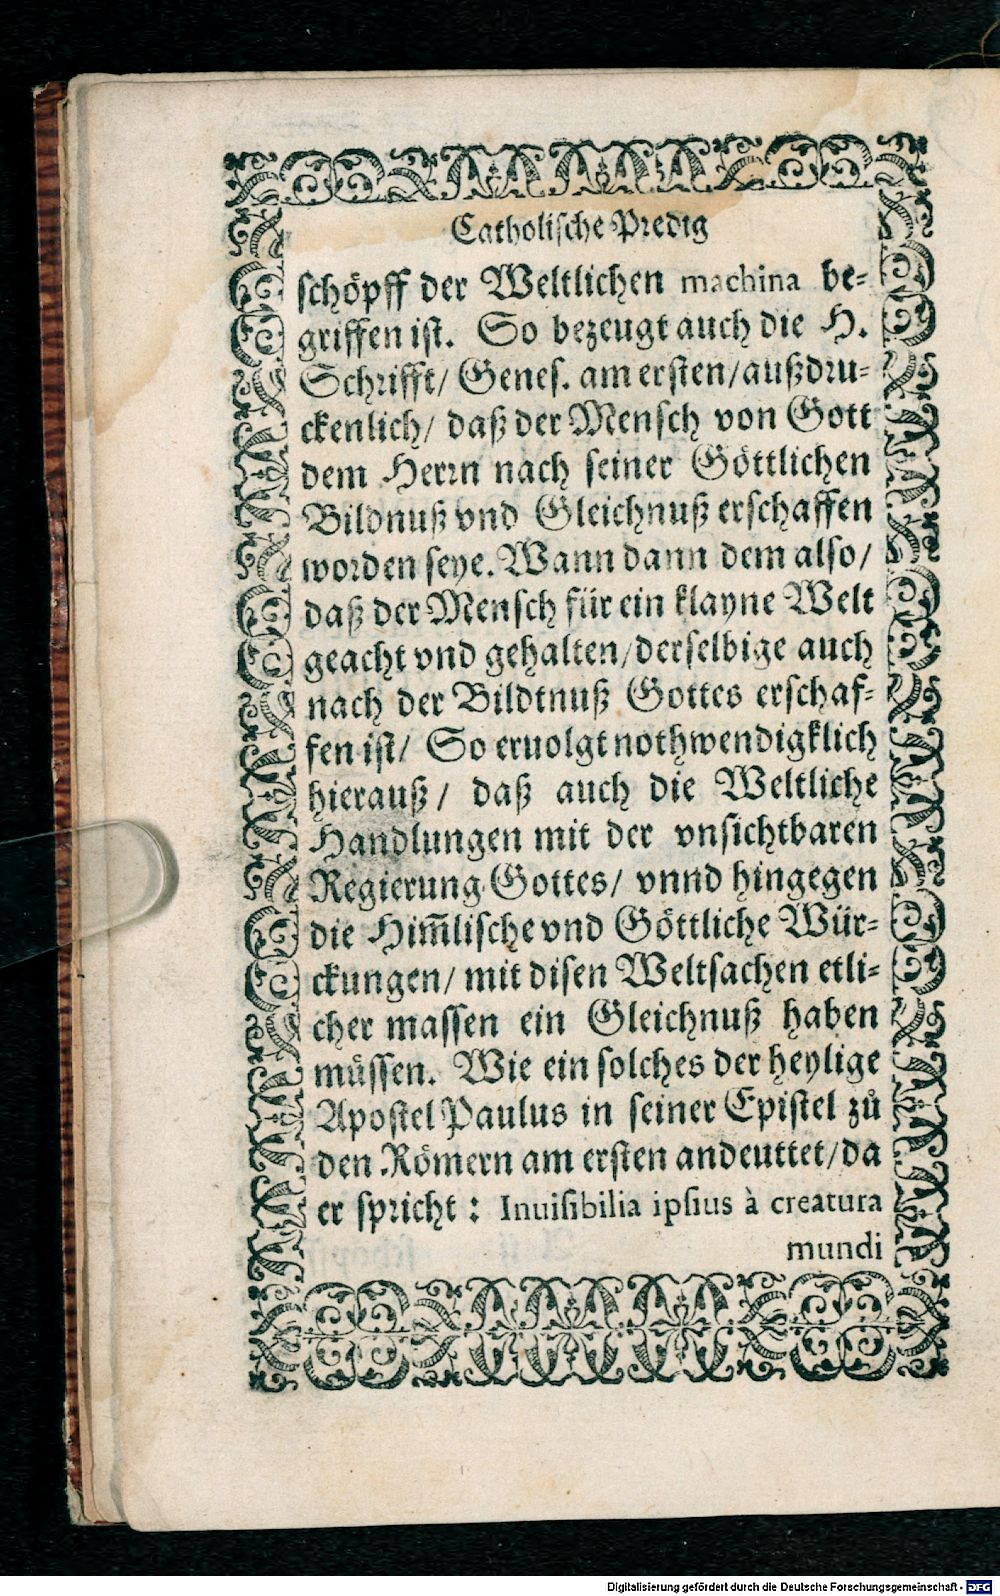 Catholische Predig
schöpff der Weltlichen machina be-
griffen ist. So bezeugt auch die H.
Schrifft/ Genes. am ersten/ außdru-
ckenlich/ daß der Mensch von Gott
dem Herrn nach seiner Göttlichen
Bildnuß vnd Gleichnuß erschaffen
worden seye. Wann dann dem also/
daß der Mensch für ein klayne Welt
geacht vnd gehalten/ derselbige auch
nach der Bildtnuß Gottes erschaf-
fen ist/ So eruolgt nothwendigklich
hierauß/ daß auch die Weltliche
Handlungen mit der vnsichtbaren
Regierung Gottes/ vnnd hingegen
die Him̃lische vnd Göttliche Wür-
ckungen/ mit disen Weltsachen etli-
cher massen ein Gleichnuß haben
müssen. Wie ein solches der heylige
Apostel Paulus in seiner Epistel zů
den Römern am ersten andeuttet/ da
er spricht: Inuisibilia ipsius à creatura
mundi
Digitalisierung gefördert durch die Deutsche Forschungsgemeinschaft - DFG